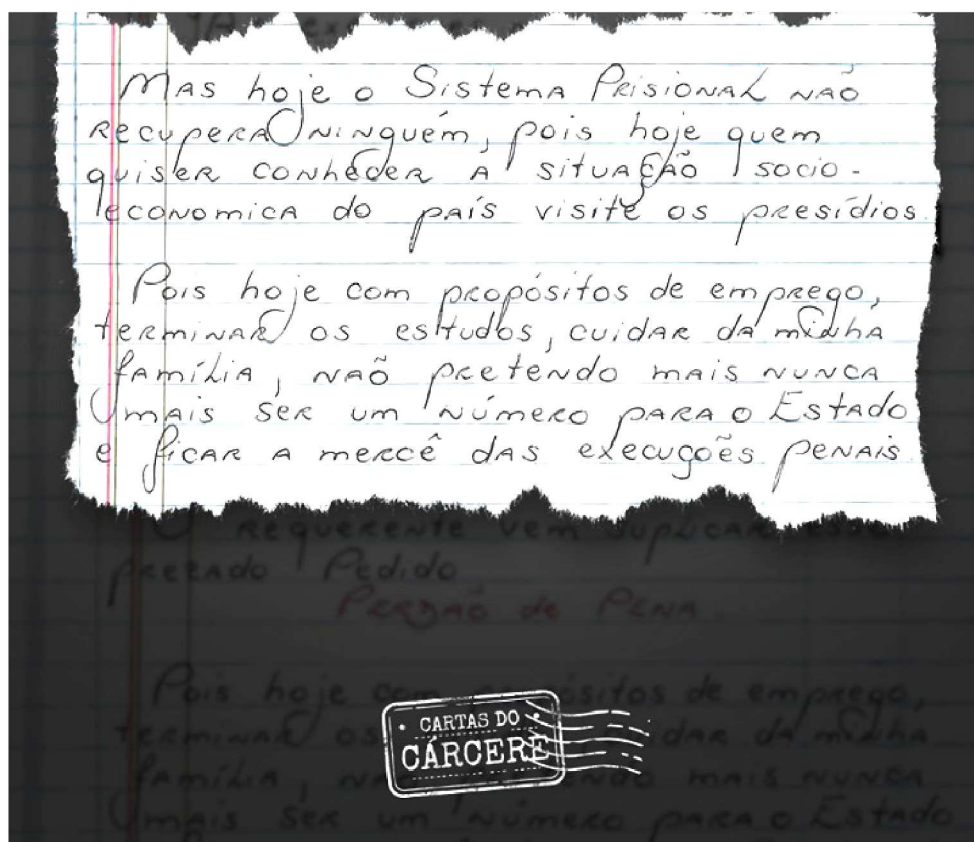 Mas hoje o Sistema Prisional não
recupera ninguém, pois hoje quem
quiser conheder a situação socio-
economica do país visite os presídios.
Pois hoje com propósitos de emprego,
terminar os estudos, cuidar da minha
família, não pretendo mais nunca
mais ser um número para o Estado
e ficar a mercê das execuções penais
O requerente vem suplicar
prezado Pedido
Perdão de Pena.
Pois hoje com propósitos de emprego,
terminar os cuidar da minha
família, mais nunca
mais ser um número para o Estado
CARTAS DO
CÁRCERE